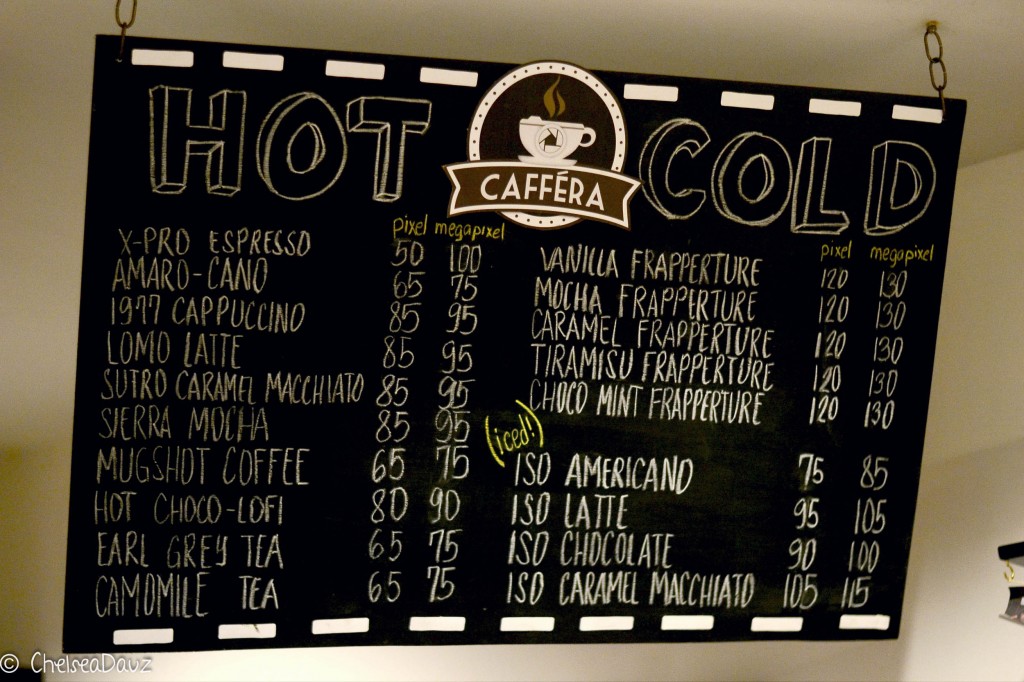 HOT
CAFFÉRA
COLD
pixel megapixel
X-PRO ESPRESSO 50 100
AMARO-CANO 65 75
1977 CAPPUCCINO 85 95
LOMO LATTE 85 95
SUTRO CARAMEL MACCHIATO 85 95
SIERRA MOCHA 85 95
MUGSHOT COFFEE 65 75
HOT CHOCO-LOFI 80 90
EARL GREY TEA 65 75
CAMOMILE TEA 65 75
pixel megapixel
VANILLA FRAPPERTURE 120 130
MOCHA FRAPPERTURE 120 130
CARAMEL FRAPPERTURE 120 130
TIRAMISU FRAPPERTURE 120 130
CHOCO MINT FRAPPERTURE 120 130
(iced!)
ISO AMERICANO 75 85
ISO LATTE 95 105
ISO CHOCOLATE 90 100
ISO CARAMEL MACCHIATO 105 115
© ChelseaDauz